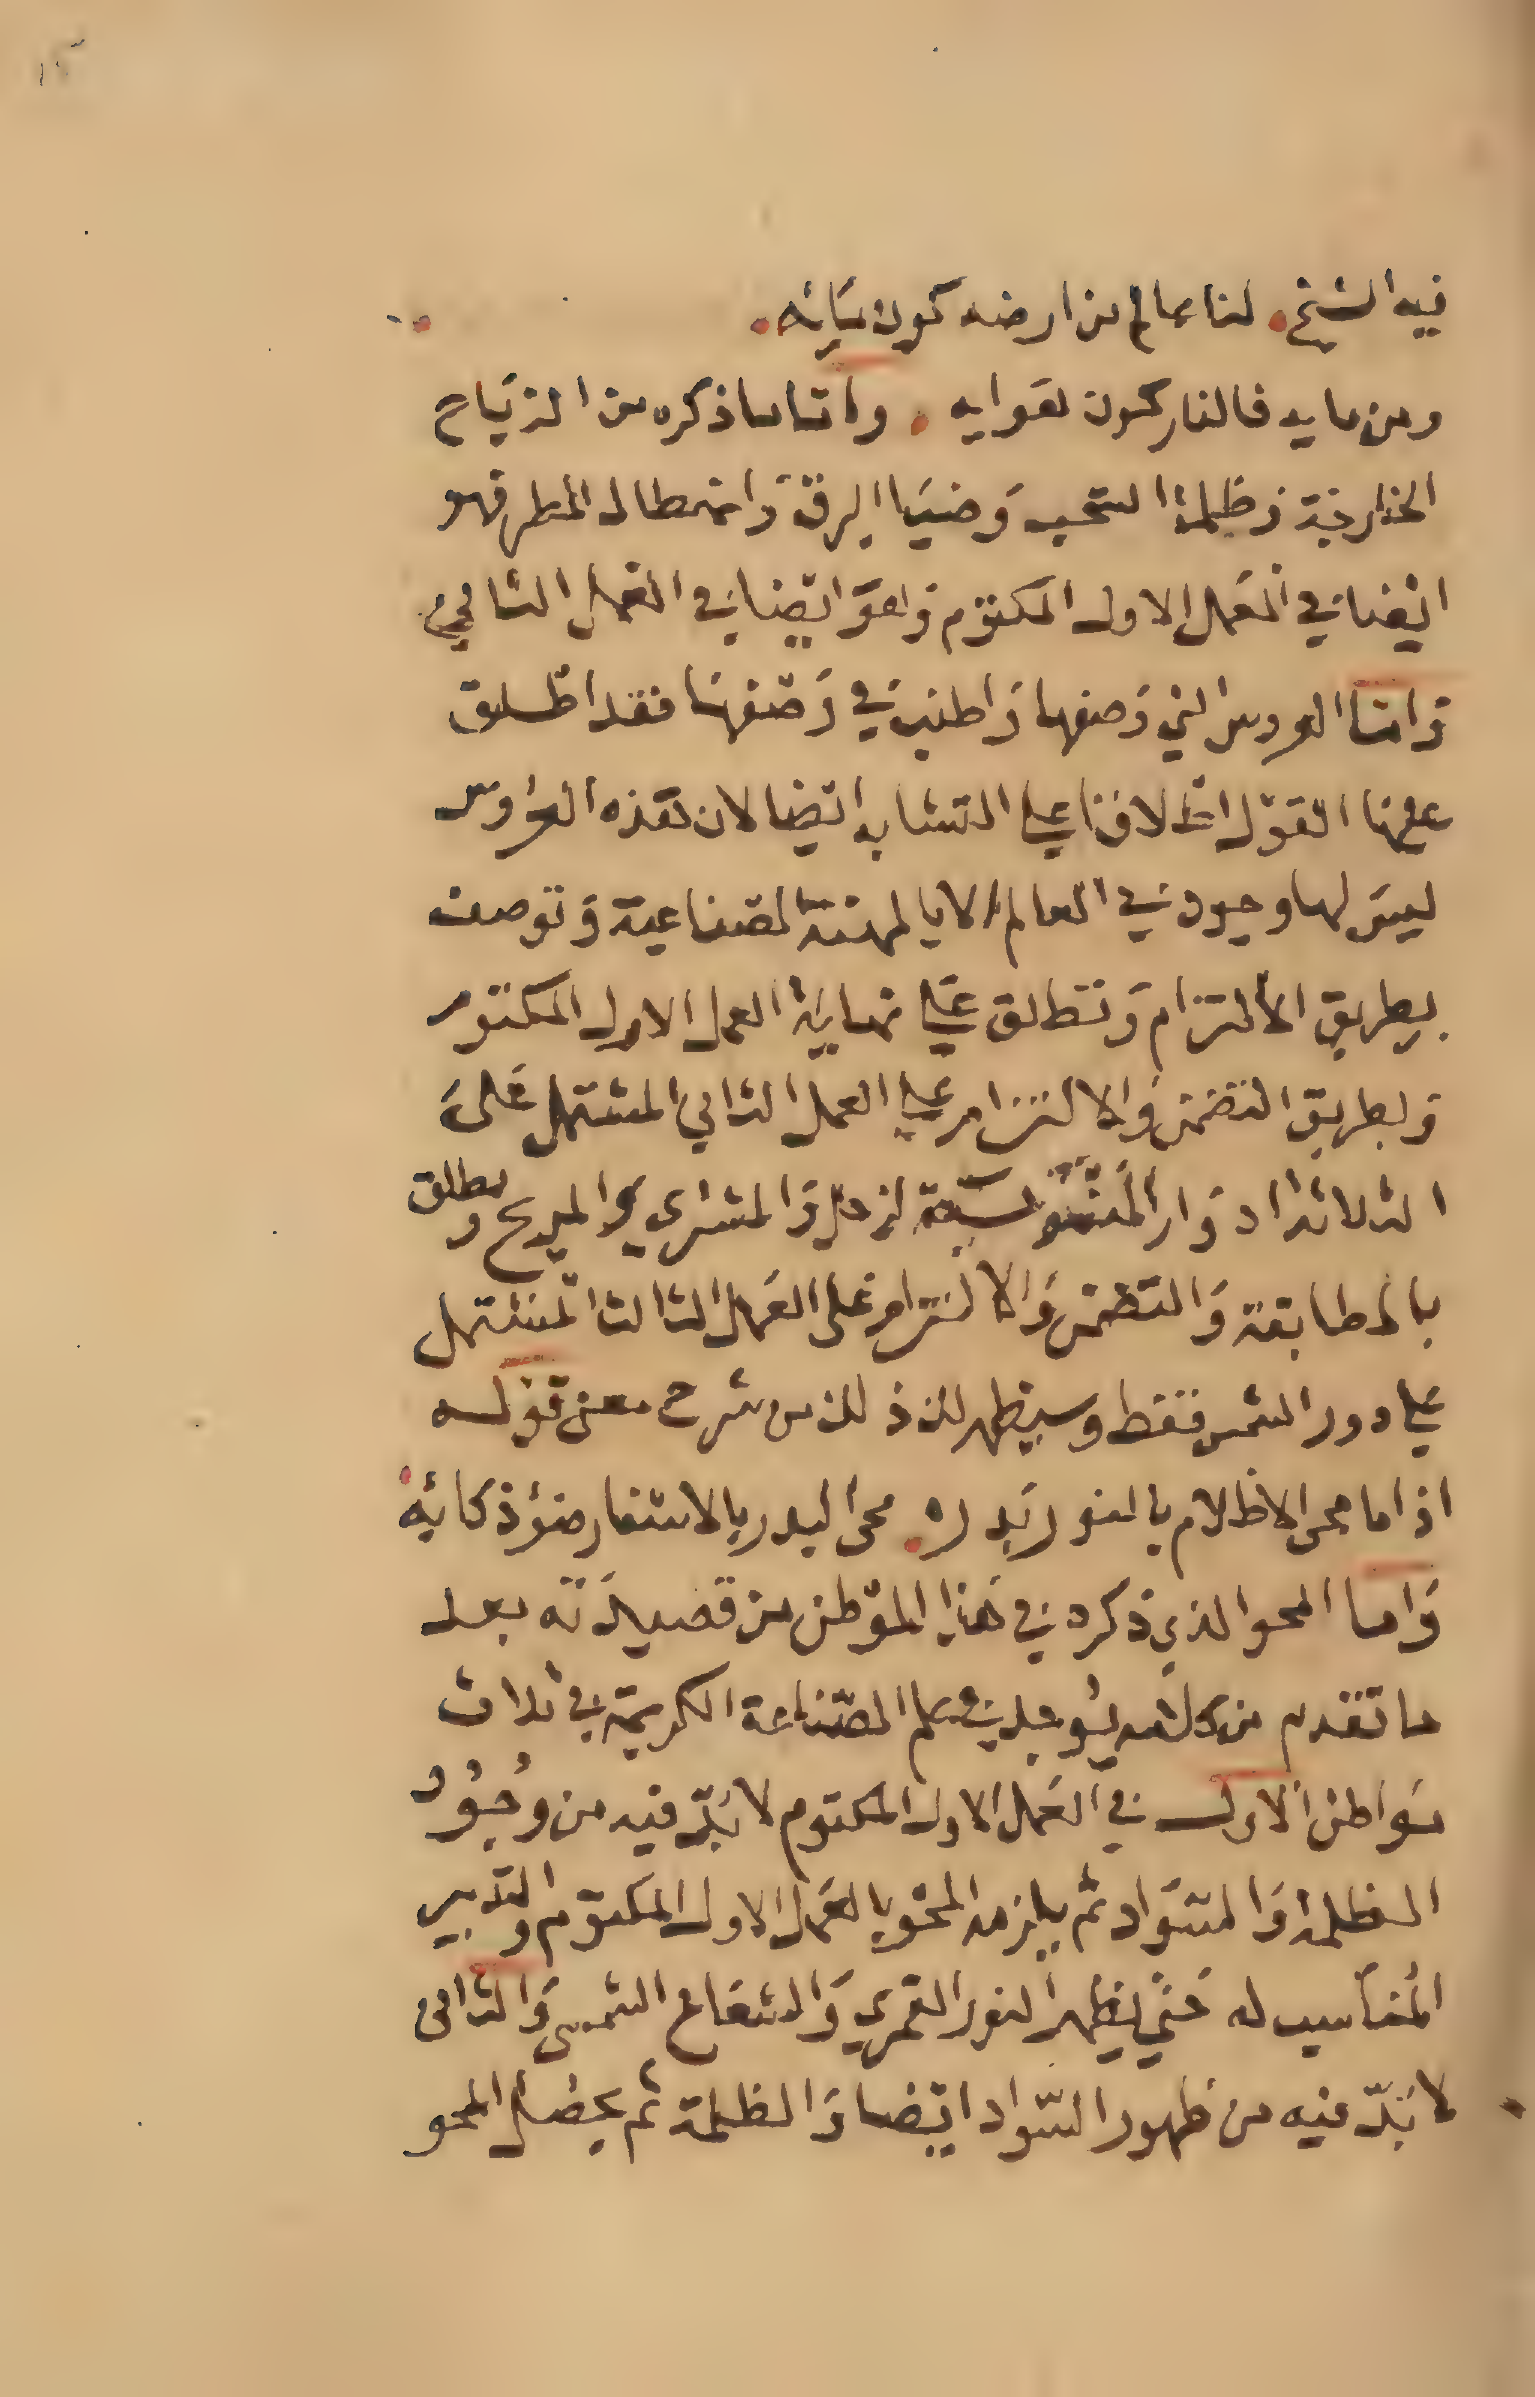 ١٣
فيه الشيخ. لنا عالم من ارضه كون مائه.
ومن مايه فالنار كون هوايه. واما ما ذكره من الرياح
الخارجة وظلمة السحب وضيا البرق وانهطال المطر فهو
ايضا في العمل الاول المكتوم وهو ايضا في العمل الثاني
واما العروس التي وصفها واطنب في وصفها فقد اطلق
عليها القول اطلاقا على التشابه ايضا لان هذه العروس
ليس لها وجود في العالم الا بالمهنة الصناعية وتوصف
بطريق الالتزام وتطلق على نهاية العمل الاول المكتوم
وبطريق التضمن والالتزام على العمل الثاني المشتمل على
الثلاثة ادوار المنسوبة لزحل والمشتري والمريخ وتطلق
بالمطابقة والتضمن والالتزام على العمل الثالث المشتمل
على دور الشمس فقط وسيظهر لك ذلك من شرح معنى قوله
اذا ما محى الاظلام بالنور بدره. محى البدر بالاسفار ضوء ذكائه
واما المحو الذي ذكره في هذا الموطن من قصيدته بعد
ما تقدم من كلامه يوجد في علم الصناعة الكريمة في ثلاث
مواطن الاول في العمل الاول المكتوم لا بد فيه من وجود
الظلمة والسواد ثم يلزمه المحو بالعمل الاول المكتوم والتدبير
المناسب له حتى يظهر النور القمري والشعاع الشمسي والثاني
لا بد فيه من ظهور السواد ايضا والظلمة ثم يحصل المحو